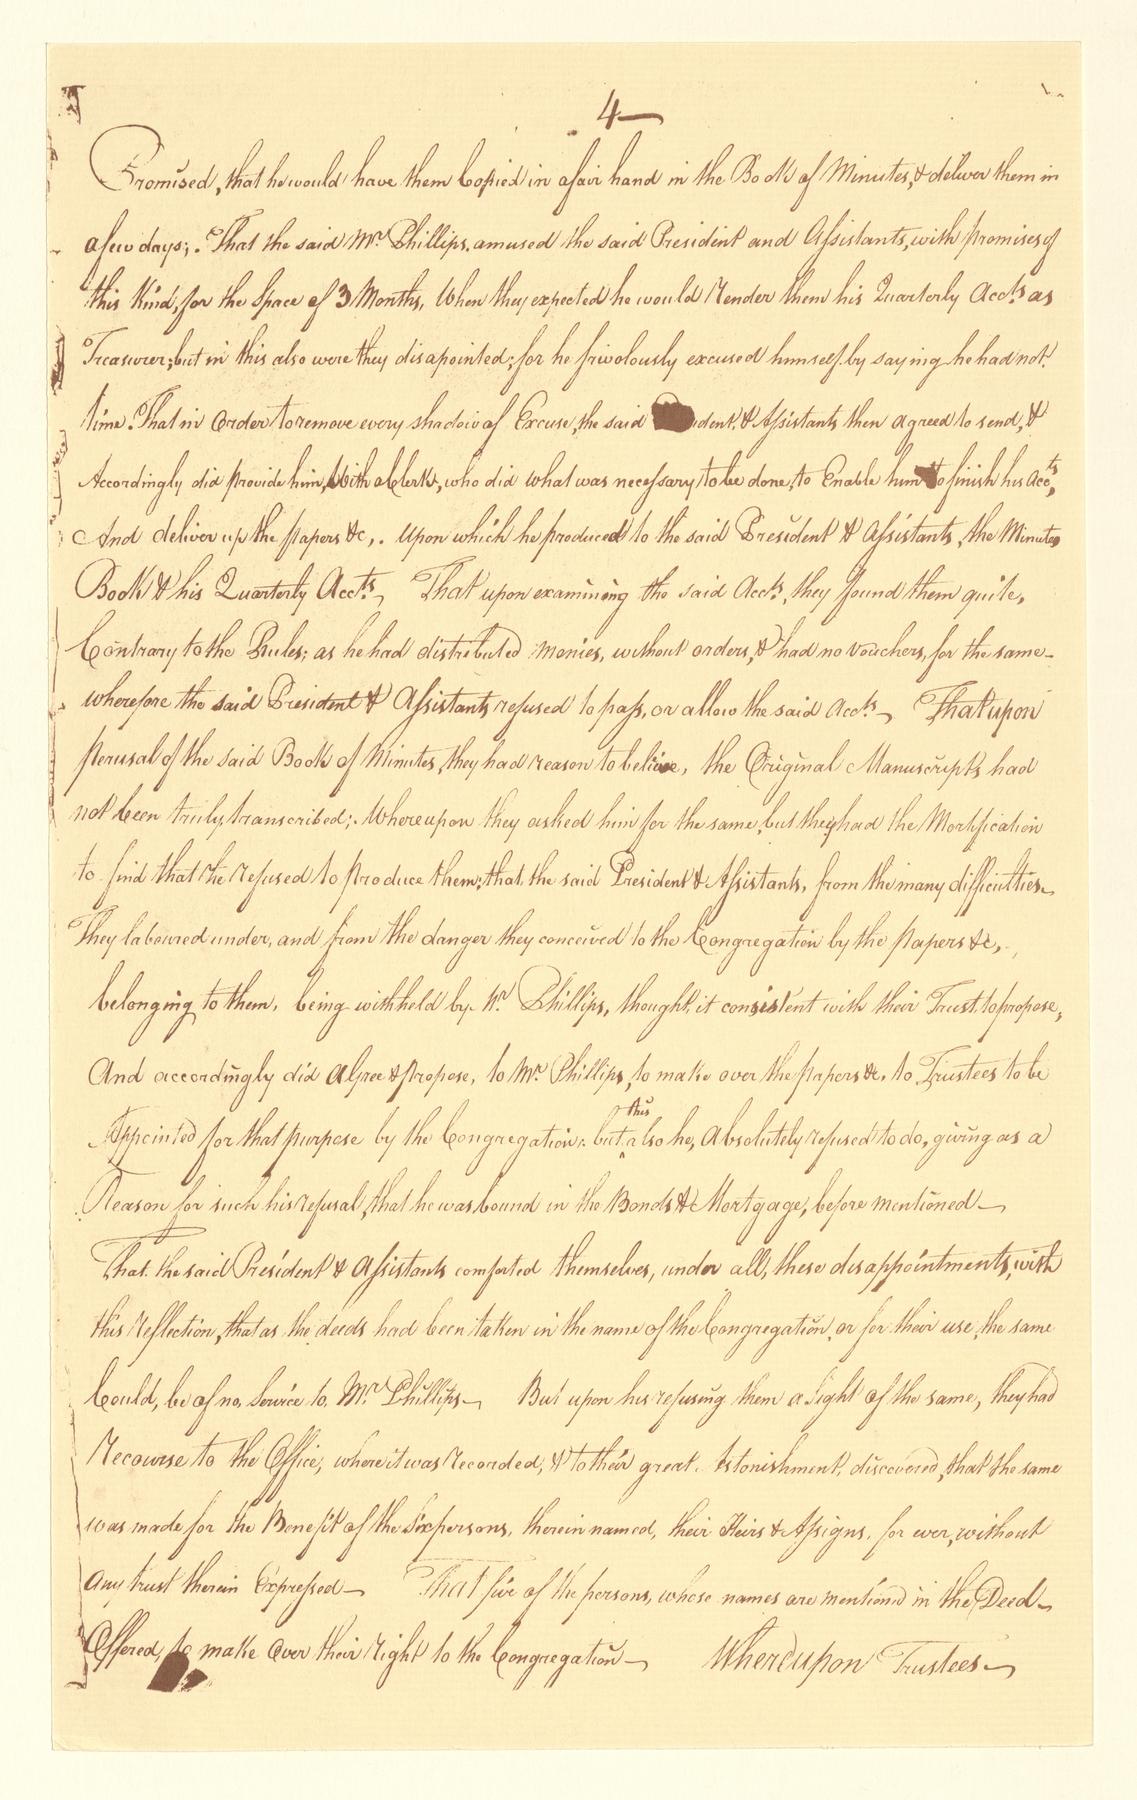 4
Promised, that he would have them Copied in a fair hand in the Book of Minutes, & deliver them in
a few days; . That the said Mr. Phillips, amused the said President and Assistants, with promises of
this kind, for the Space of 3 Months, When they expected he would render them his Quarterly Accts. as
Treasurer; but in this also were they disapointed; for he frivolously excused himself by saying he had not
time. That in Order to remove every shadow of Excuse, the said ident, & Assistants then agreed to send, &
Accordingly did provide him, With a Clerk, who did what was necessary to be done, to Enable him to finish his Accts,
And deliver up the papers &c,. Upon which he produced to the said President & Assistants, the Minutes
Book & his Quarterly Accts. That upon examining the said Accts, they found them quite,
Contrary to the Rules; as he had distributed Monies, without orders, & had no Vouchers, for the same—
wherefore the said President & Assistants refused to pass, or allow the said Accts— That upon
perusal of the said Book of Minutes, they had reason to believe, the Original Manuscripts had
not been truly transcribed; Whereupon they asked him for the same, but they had the Mortification
to find that he refused to produce them; that the said President & Assistants, from the many difficulties—
They laboured under, and from the danger they conceived to the Congregation by the papers &c,
belonging to them, being withheld by Mr. Phillips, thought it consistent with their Trust, to propose,
And accordingly did Agree & propose, to Mr. Phillips, to make over the papers &c. to Trustees to be
Appointed for that purpose by the Congregation; but this also he, Absolutely refused to do, giving as a
Reason for such his refusal, that he was bound in the Bonds & Mortgage, before mentioned—
That the said President & Assistants comforted themselves, under all, these disappointments, with
this reflection, that as the deeds had been taken in the name of the Congregation, or for their use, the same
Could, be of no, Service to Mr. Phillips— But upon his refusing them a Sight of the same, they had
Recourse to the Office, where it was recorded, & to their great Astonishment, discovered, that the same
was made for the Benefit of the Six persons, therein named, their Heirs & Assigns, for ever, without
any trust therein Expressed— That five of the persons, whose names are mentioned in the Deed—
Offered, to make Over their right to the Congregation— Whereupon Trustees—